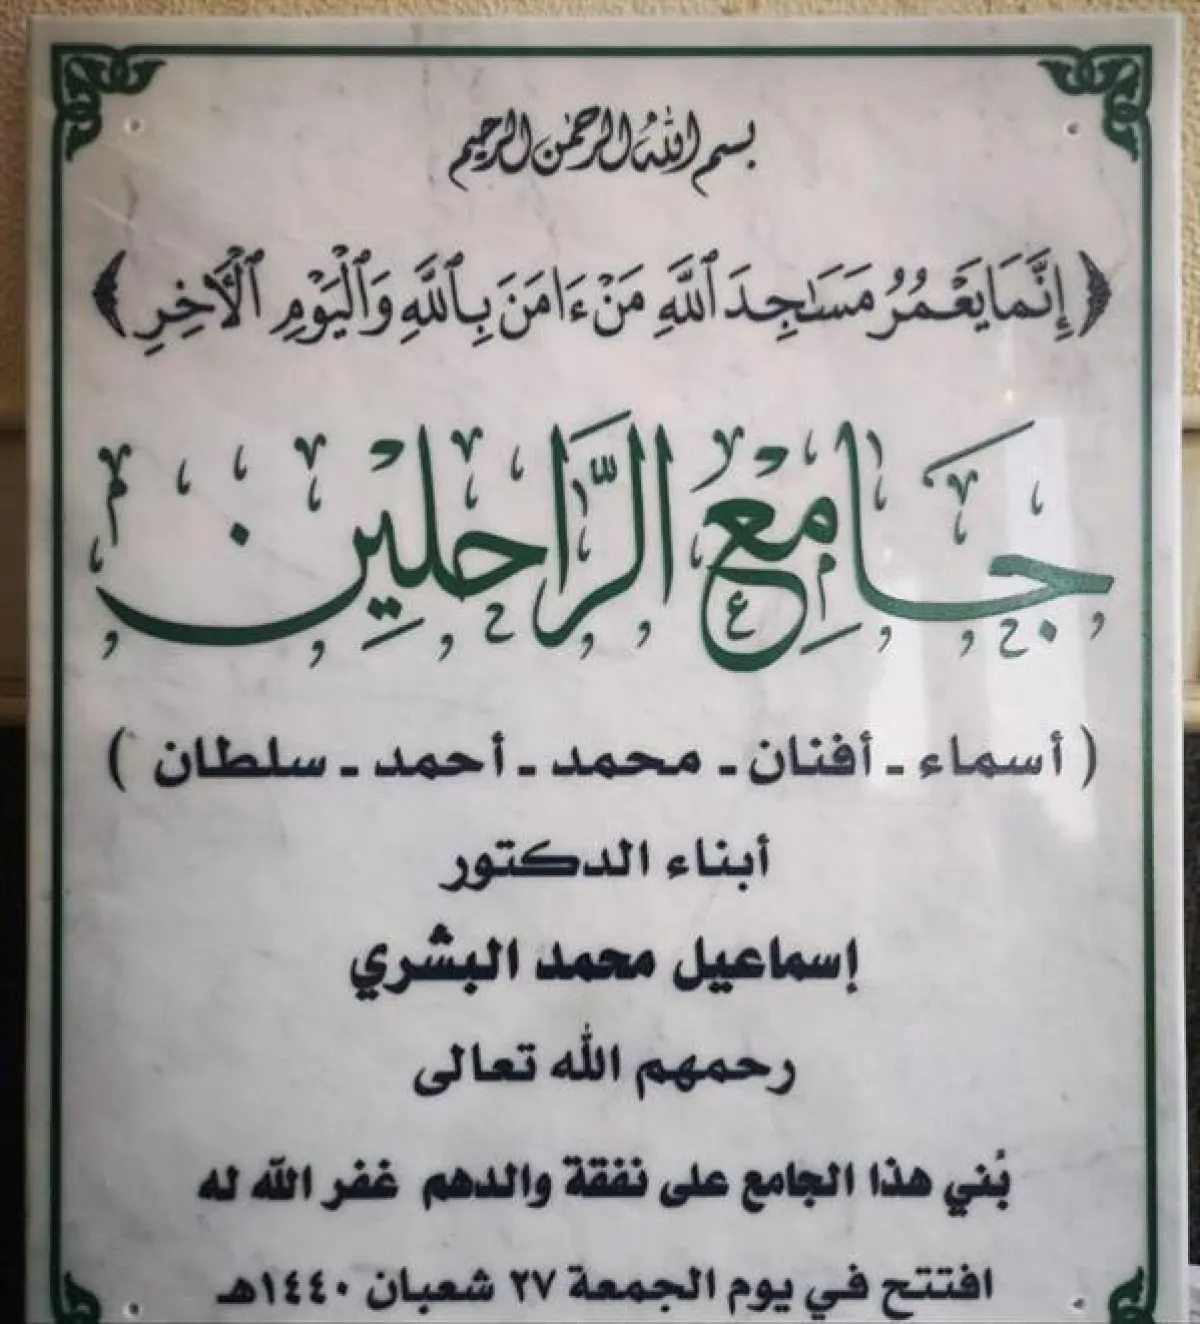 بسم الله الرحمن الرحيم
﴿ إِنَّمَا يَعْمُرُ مَسَٰجِدَ ٱللَّهِ مَنْ ءَامَنَ بِٱللَّهِ وَٱلْيَوْمِ ٱلْأَخِرِ ﴾
جَامِع الرَّاحلِيْن
( أسماء - أفنان - محمد - أحمد - سلطان )
أبناء الدكتور
إسماعيل محمد البشري
رحمهم الله تعالى
بُني هذا الجامع على نفقة والدهم غفر الله له
افتتح في يوم الجمعة ٢٧ شعبان ١٤٤٠هـ